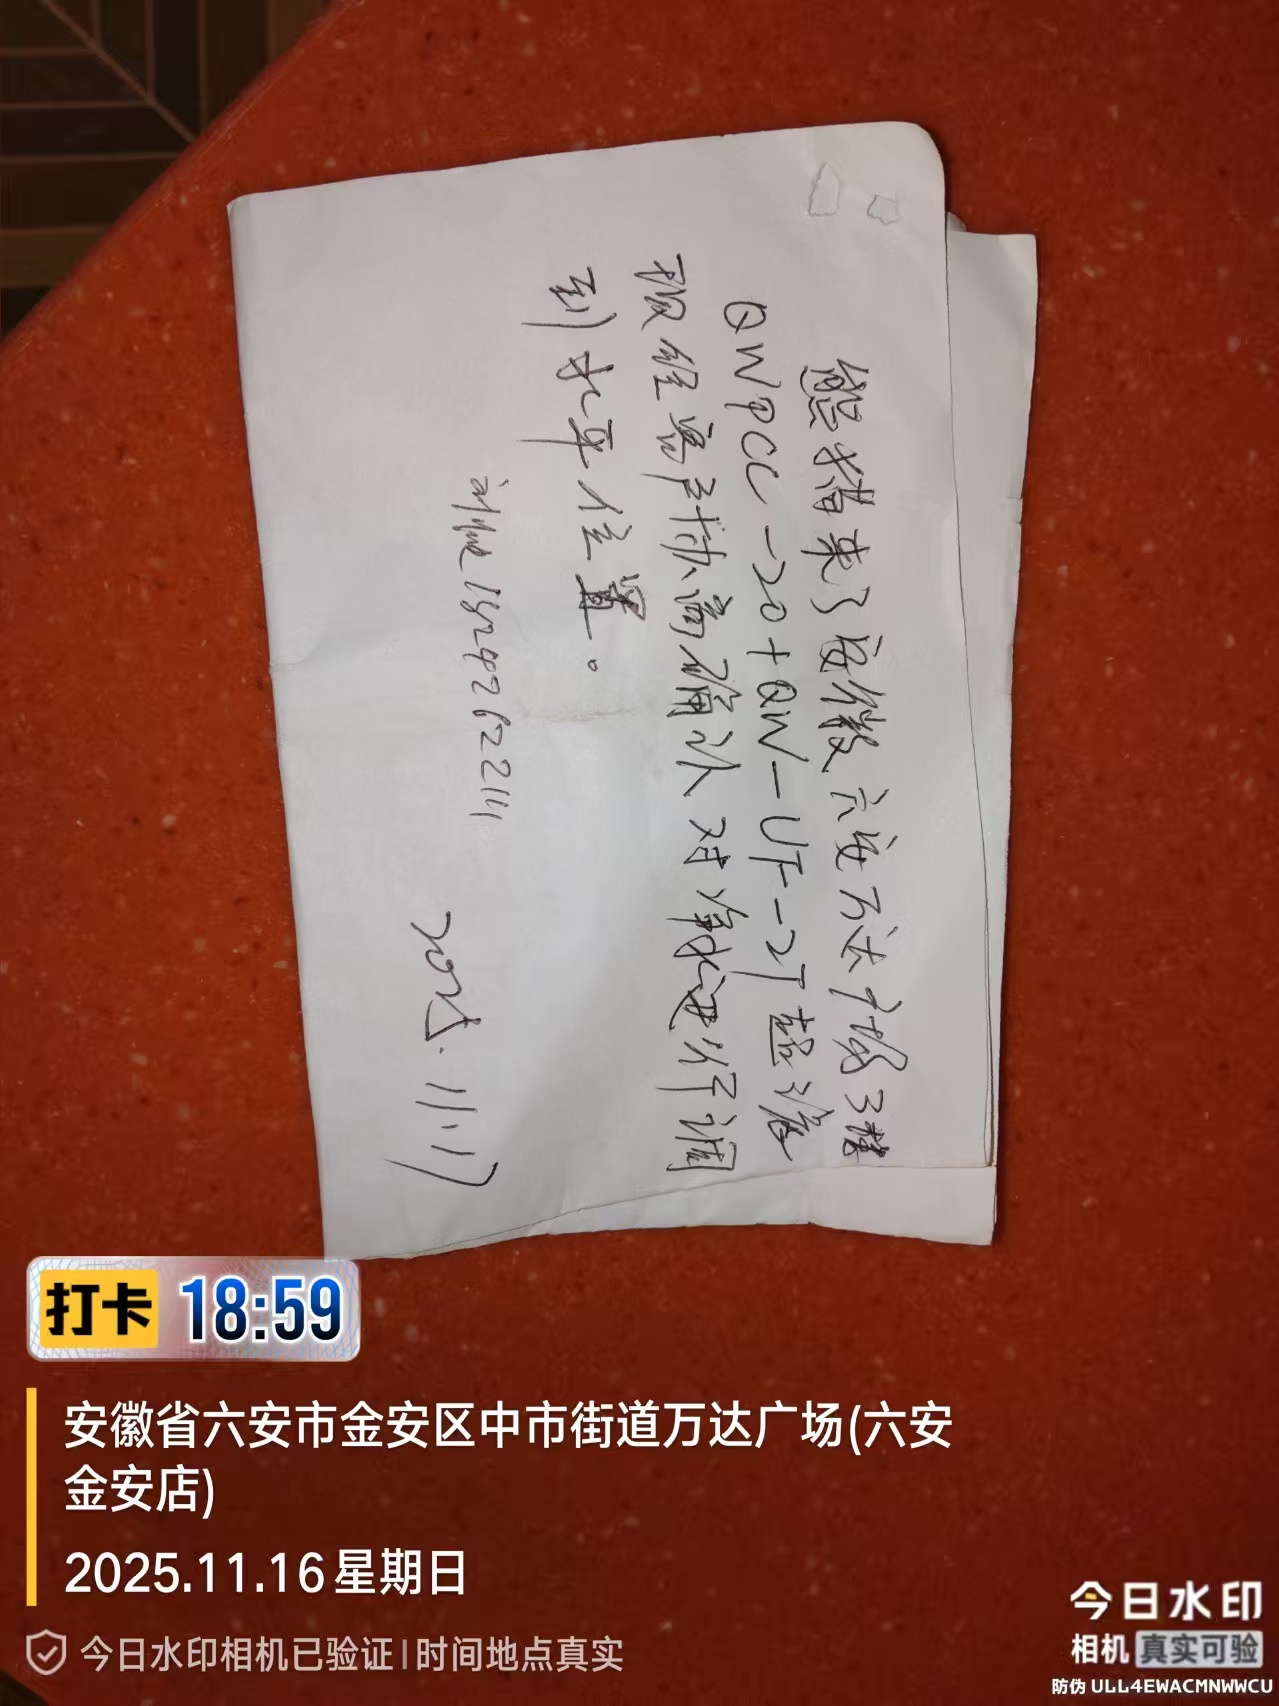 熊猎来了安徽六安万达广场3楼
QWPCC-20+QW-UF-2T超滤
现经客户协商确认对净水进行调
到水平位置。
18292622111
2025.11.17
打卡 18:59
安徽省六安市金安区中市街道万达广场(六安
金安店)
2025.11.16 星期日
今日水印相机已验证|时间地点真实
今日水印
相机 真实可验
防伪 ULL4EWACMNWWCU